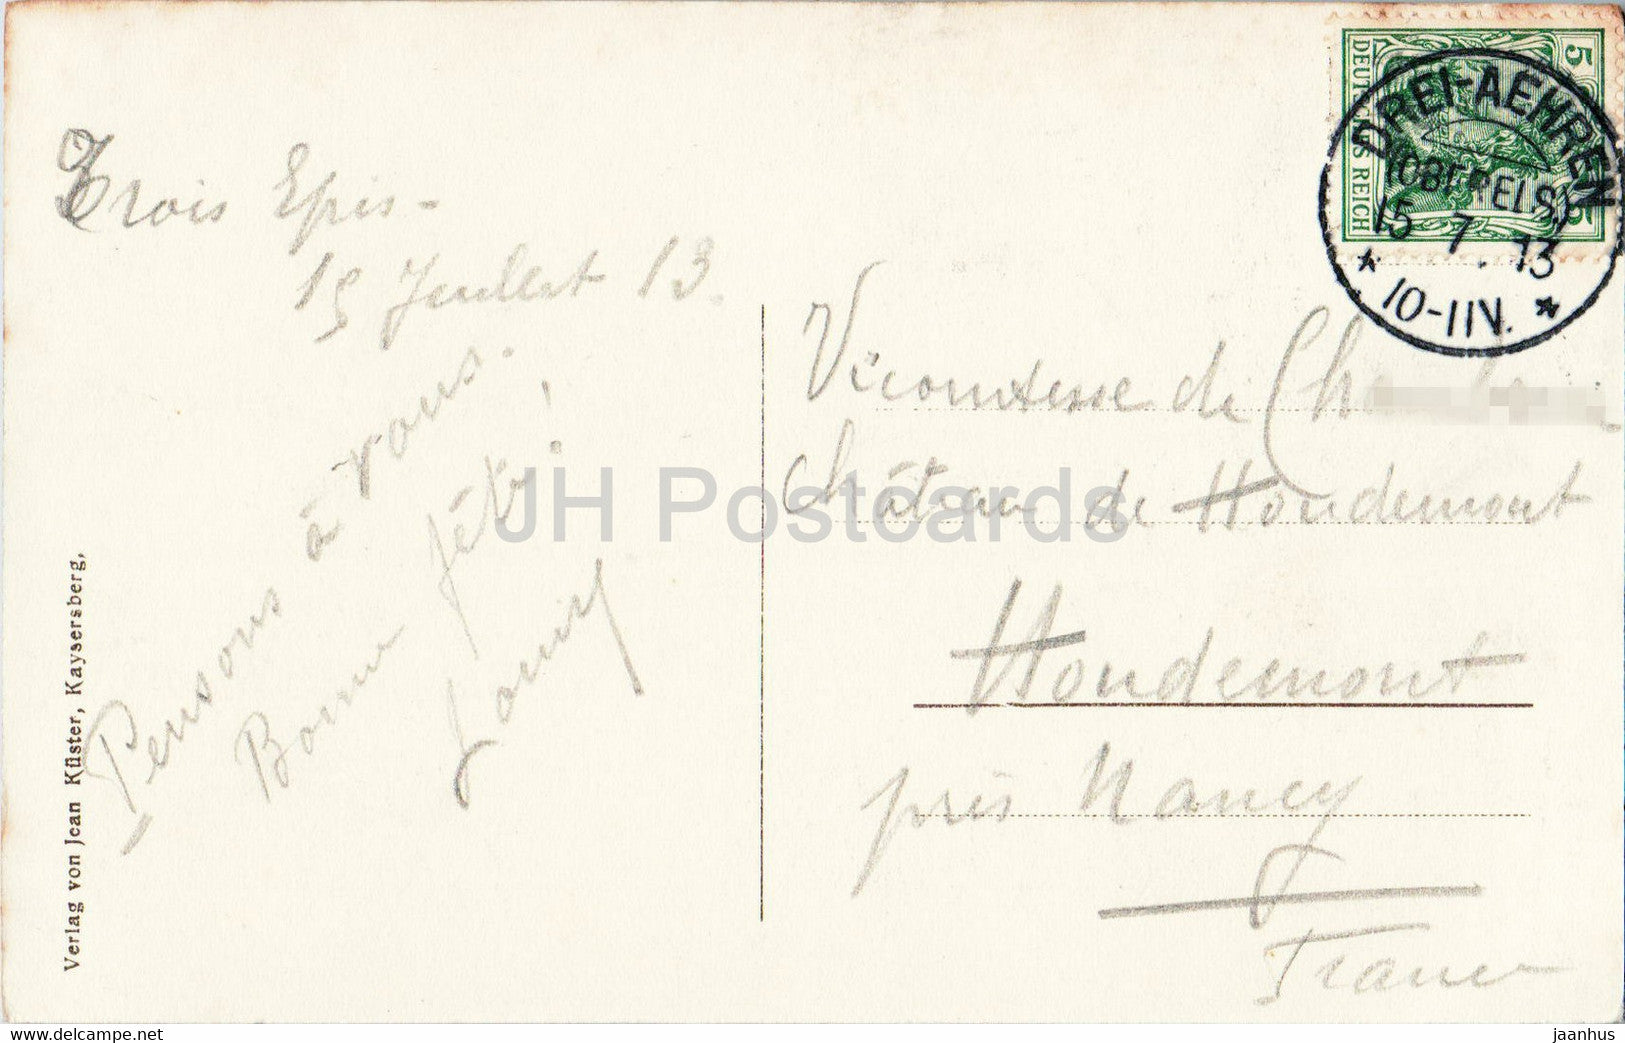 Trois Epis -
15 Juillet 13.
Pensons à vous.
Bonne fête!
Verlag von Jean Küster, Kaysersberg,
5
DEUTSCHES REICH
5
DREI-AEHREN
(OBERELS.)
15 7. 13
* 10-11V. *
Vicomtesse de
Château de Houdemont
Houdemont
près Nancy
France
JH Postcards
www.delcampe.net
jaanhus